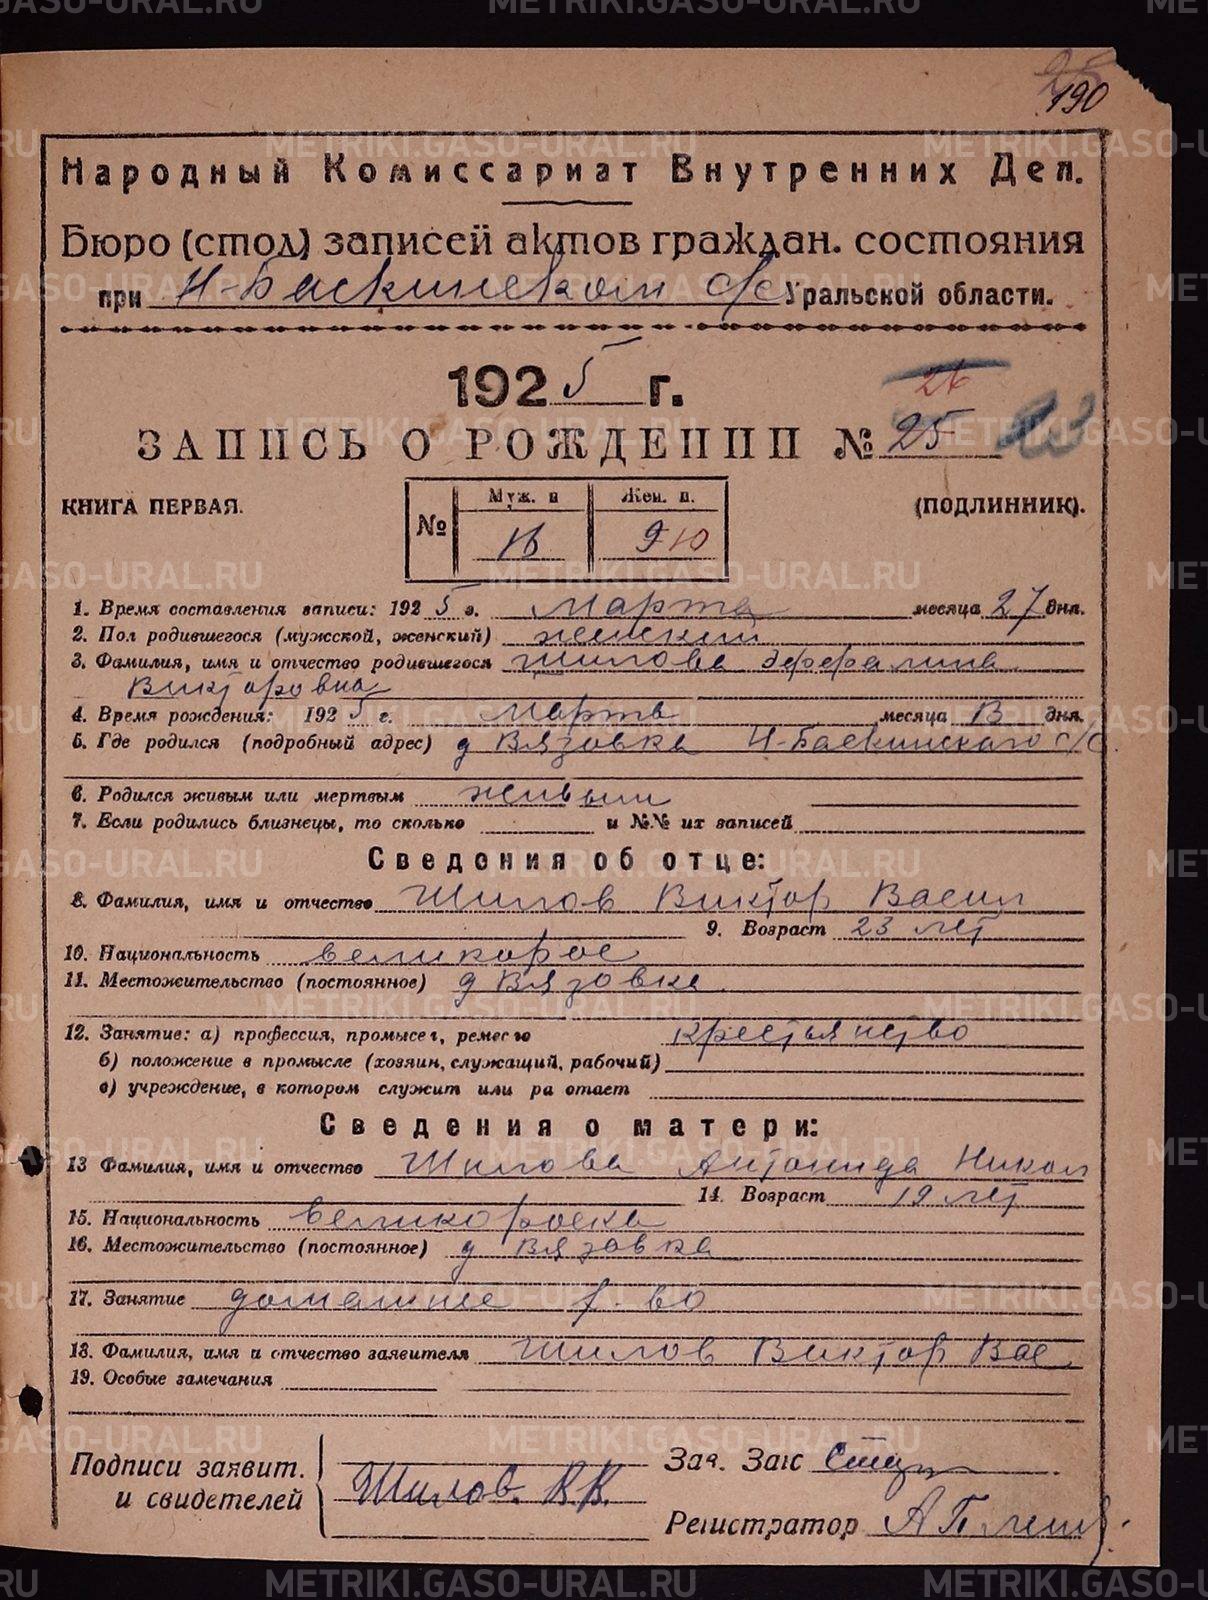 190
Народный Комиссариат Внутренних Дел.
Бюро (стол) записей актов граждан. состояния
при Н-Баскинском с/с Уральской области.
1925 г.
26
ЗАПИСЬ О РОЖДЕНПП № 25
КНИГА ПЕРВАЯ.
(ПОДЛИННИК).
№ Муж. п Жен. п.
16 9 10
1. Время составления записи: 1925 г. Марта месяца 27 дня.
2. Пол родившегося (мужской, женский) женский
3. Фамилия, имя и отчество родившегося Шилова
Викторовна
4. Время рождения: 1925 г. Марта месяца дня.
5. Где родился (подробный адрес) д Вязовка Н-Баскинскаго с/с
6. Родился живым или мертвым живым
7. Если родились близнецы, то сколько и №№ их записей
Сведения об отце:
8. Фамилия, имя и отчество Шилов Виктор Васил
9. Возраст 23 лет
10. Национальность великорос
11. Местожительство (постоянное) д Вязовка
12. Занятие: а) профессия, промысел, ремесло крестьянство
б) положение в промысле (хозяин, служащий, рабочий)
в) учреждение, в котором служит или ра отает
Сведения о матери:
13 Фамилия, имя и отчество Шилова Антонида Никол
14. Возраст 19 лет
15. Национальность великороска
16. Местожительство (постоянное) д Вязовка
17. Занятие домашнее х-во
18. Фамилия, имя и отчество заявителя Шилов Виктор Вас
19. Особые замечания
Подписи заявит.
и свидетелей
Шилов. В.В.
Зав. Загс
Регистратор
METRIKI.GASO-URAL.RU